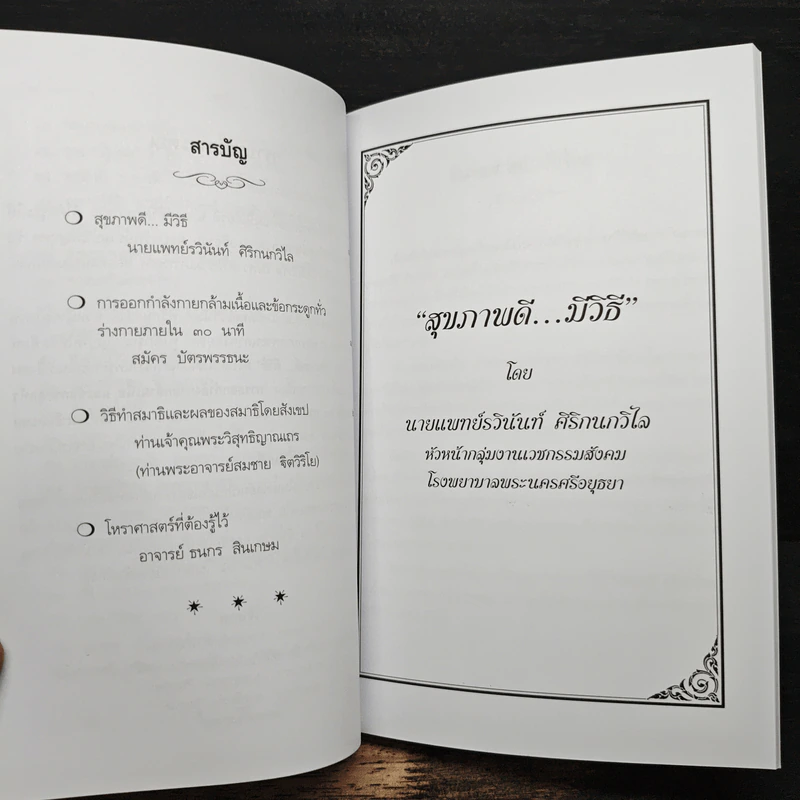 สารบัญ
สุขภาพดี... มีวิธี
นายแพทย์รวินันท์ ศิริกนกวิไล
การออกกำลังกายกล้ามเนื้อและข้อกระดูกทั่ว
ร่างกายภายใน ๓๐ นาที
สมัคร บัตรพรรธนะ
วิธีทำสมาธิและผลของสมาธิโดยสังเขป
ท่านเจ้าคุณพระวิสุทธิญาณเถร
(ท่านพระอาจารย์สมชาย ฐิตวิริโย)
โหราศาสตร์ที่ต้องรู้ไว้
อาจารย์ ธนกร สินเกษม
“สุขภาพดี...มีวิธี”
โดย
นายแพทย์รวินันท์ ศิริกนกวิไล
หัวหน้ากลุ่มงานเวชกรรมสังคม
โรงพยาบาลพระนครศรีอยุธยา